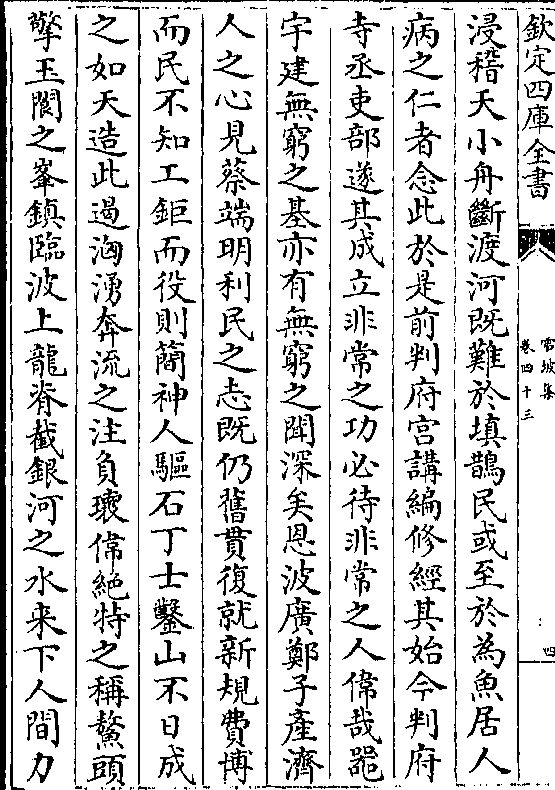 欽定四庫全書
雪坡集
卷四十三
四
浸稽天小舟斷渡河既難於填鵲民或至於為魚居人
病之仁者念此於是前判府宫講編修經其始今判府
寺丞吏部遂其成立非常之功必待非常之人偉哉器
宇建無窮之基亦有無窮之聞深矣恩波廣鄭子產濟
人之心見蔡端明利民之志既仍舊貫復就新規費博
而民不知工鉅而役則簡神人驅石丁士鑿山不日成
之如天造此遏洶湧奔流之注負瓌偉絶特之稱鰲頭
擎玉閬之峯鎮臨波上龍脊截銀河之水来下人間力